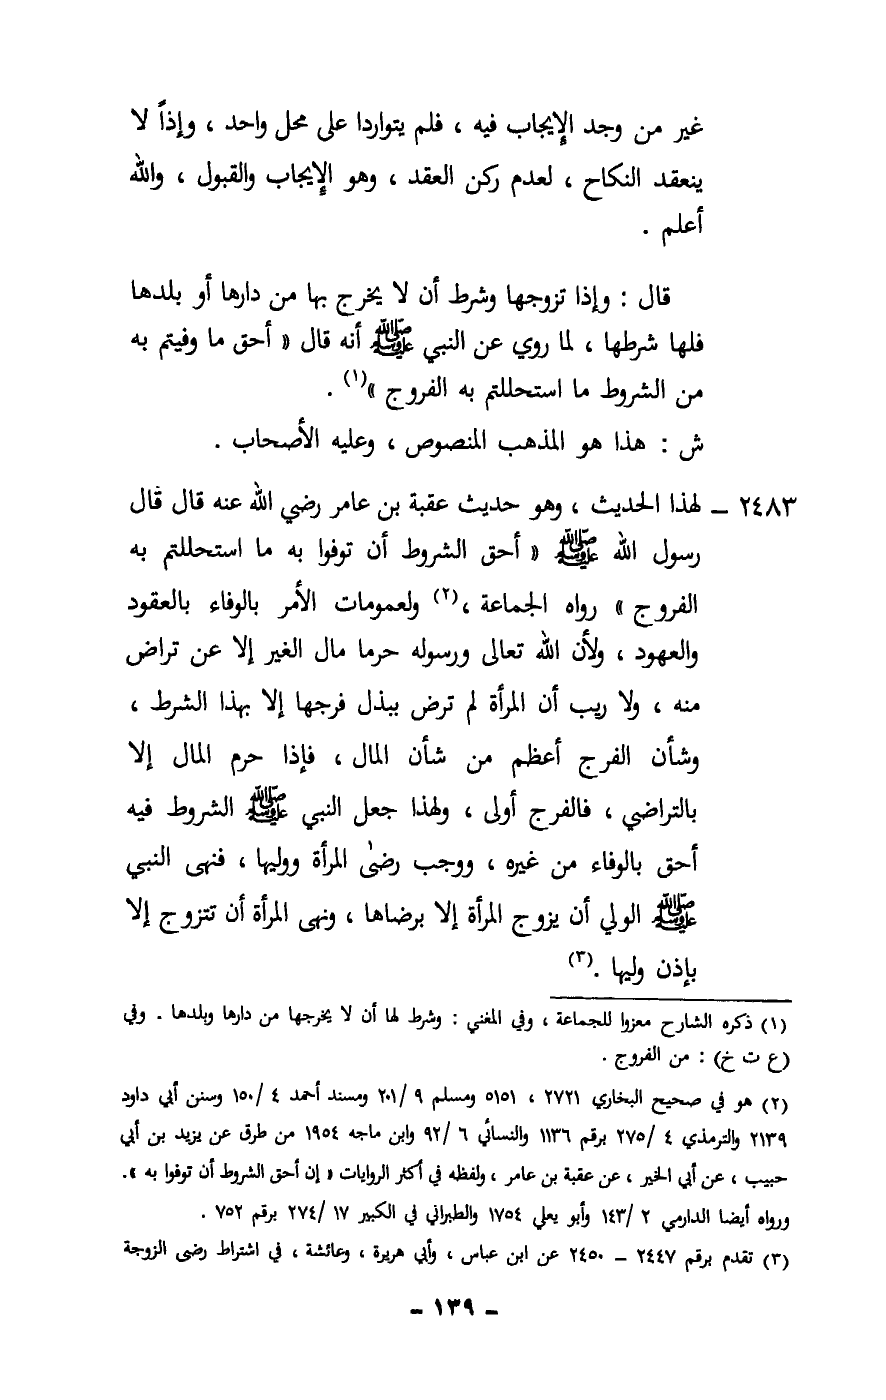 غير من وجد الإيجاب فيه ، فلم يتواردا على محل واحد ، وإذاً لا
ينعقد النكاح ، لعدم ركن العقد ، وهو الإيجاب والقبول ، والله
أعلم .
قال : وإذا تزوجها وشرط أن لا يخرج بها من دارها أو بلدها
فلها شرطها ، لما روي عن النبي ﷺ أنه قال « أحق ما وفيتم به
من الشروط ما استحللتم به الفروج »(١) .
ش : هذا هو المذهب المنصوص ، وعليه الأصحاب .
٢٤٨٣ – لهذا الحديث ، وهو حديث عقبة بن عامر رضي الله عنه قال قال
رسول الله ﷺ « أحق الشروط أن توفوا به ما استحللتم به
الفروج » رواه الجماعة ،(٢) ولعمومات الأمر بالوفاء بالعقود
والعهود ، ولأن الله تعالى ورسوله حرما مال الغير إلا عن تراض
منه ، ولا ريب أن المرأة لم ترض ببذل فرجها إلا بهذا الشرط ،
وشأن الفرج أعظم من شأن المال ، فإذا حرم المال إلا
بالتراضي ، فالفرج أولى ، ولهذا جعل النبي ﷺ الشروط فيه
أحق بالوفاء من غيره ، ووجب رضىٰ المرأة ووليها ، فنهى النبي
ﷺ الولي أن يزوج المرأة إلا برضاها ، ونهى المرأة أن تتزوج إلا
بإذن وليها .(٣)
(١) ذكره الشارح معزوا للجماعة ، وفي المغني : وشرط لها أن لا يخرجها من دارها وبلدها . وفي
(ع ت خ) : من الفروج .
(٢) هو في صحيح البخاري ٢٧٢١ ، ٥١٥١ ومسلم ٩ /٢٠١ ومسند أحمد ٤ /١٥٠ وسنن أبي داود
٢١٣٩ والترمذي ٤ /٢٧٥ برقم ١١٣٦ والنسائي ٦ /٩٢ وابن ماجه ١٩٥٤ من طرق عن يزيد بن أبي
حبيب ، عن أبي الخير ، عن عقبة بن عامر ، ولفظه في أكثر الروايات « إن أحق الشروط أن توفوا به ».
ورواه أيضا الدارمي ٢ /١٤٣ وأبو يعلي ١٧٥٤ والطبراني في الكبير ١٧ /٢٧٤ برقم ٧٥٢ .
(٣) تقدم برقم ٢٤٤٧ – ٢٤٥٠ عن ابن عباس ، وأبي هريرة ، وعائشة ، في اشتراط رضى الزوجة
– ١٣٩ –